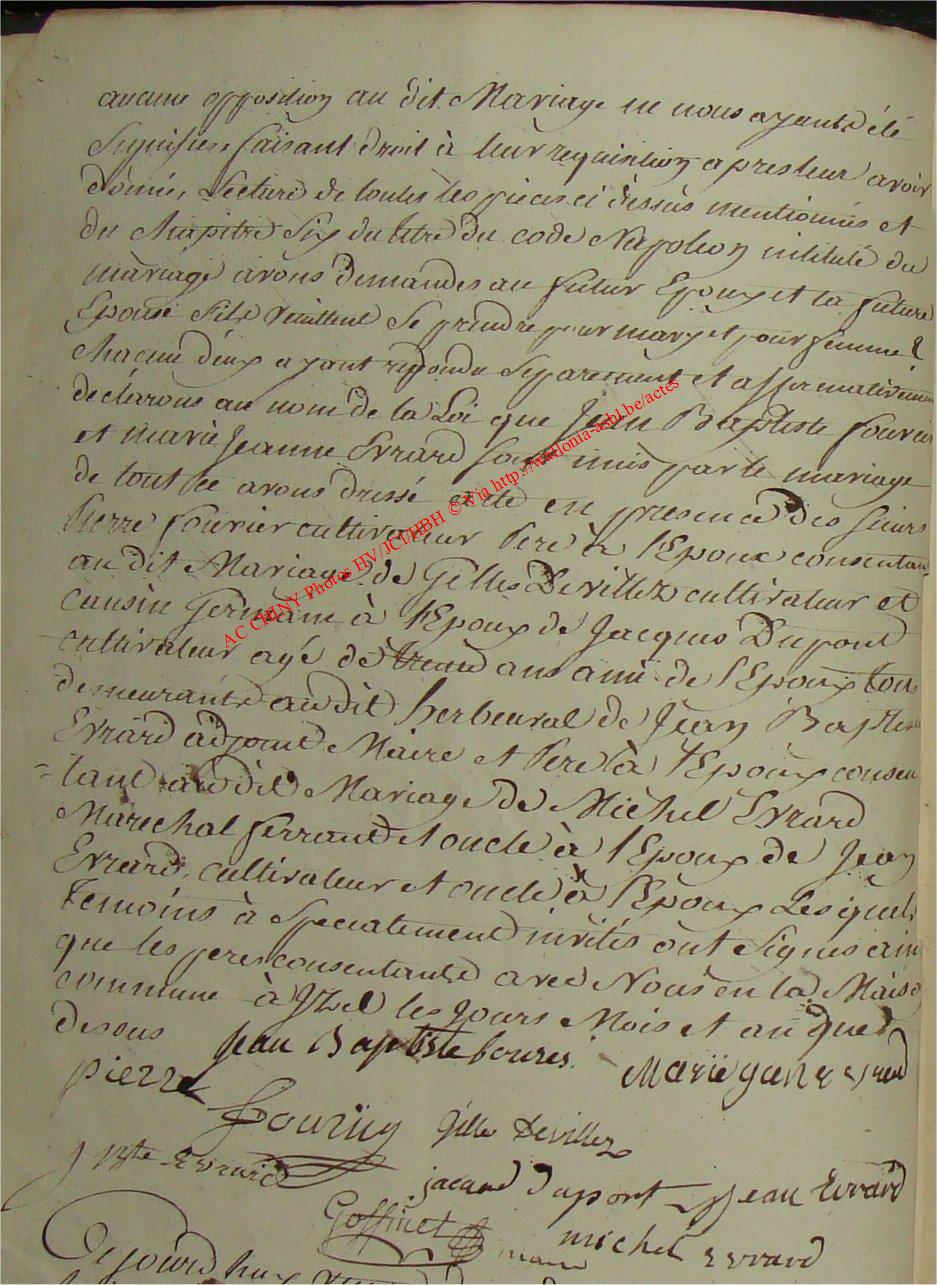 aucune opposition au dit Mariage ne nous ayants été
Signifiée, faisant droit à leur requisition apres leur avoir
donné, Lecture de toutes les pieces ci dessus mentionnées et
du Chapitre Six du titre du code Napoleon intitulé du
mariage avons demandes au futur Epoux et la future
Epouse Sils veuillent Se prendre pour mary et pour femme &
chacun deux ayant repondu Separement et affirmativement
declarons au nom de la Loi que Jean Baptiste fourier
et marie Jeanne Evrard sont unis par le mariage
de tout ce avons dressé acte en presence des Sieurs
Pierre fourier cultivateur Pere à l'Epoux consentan
au dit Mariage de Gilles Devillez cultivateur et
Cousin Germain à l'Epoux de Jacques Dupont
cultivateur agé de trente ans ami de l'Epoux tous
demeurants audit herbeuval de Jean Baptiste
Evrard adjoint Maire et Pere à l'Epoux consen
=tant au dit Mariage de Michel Evrard
Marechal ferrant et oncle à l'Epoux de Jean
Evrard, cultivateur et oncle à l'Epoux Lesquels
temoins à Specialement invités ont Signés ain
que les peres consentants avec Nous en la Maison
commune à Yzel les Jours Mois et an que
desous Jean Baptiste foures. Marie
pierre
Fouruy Gille Devillez
J Bte Evrard
jacque dupont Jean Evrard
Goffinet michel Evrard
maire
Cejourd huy
AC CHINY Photos HV/JCT/HBH © Via http://wallonia-asbl.be/actes